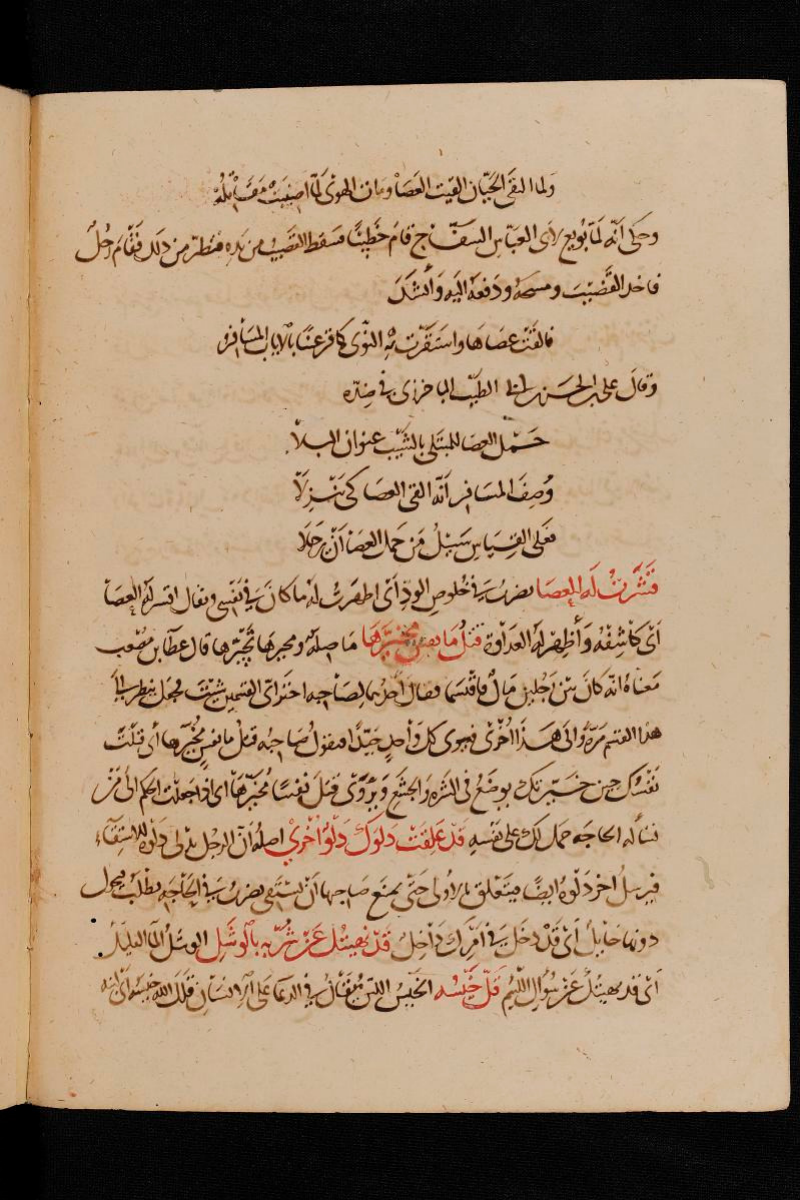 ولما التقى الحيان القيت العصا ومات الهوى لما اصيبت مقاتله
وحكى أنه لما بويع لأبى العباس السفاح قام خطيبًا فسقط القضيب من يده فتطير من ذلك فقام رجل
فاخذ القضيب ومسحه ودفعه اليه وأنشد
فالقت عصاها واستقرت به النوى كما قر عينًا بالاياب المسافر
وقال على بن الحسن بن ابى الطيب الباخرزى في ضده
حمل العصا للمبتلى بالشيب عنوان البلا
وصف المسافر أنه القى العصا كى ينزلا
فعلى القياس سبيل من حمل العصا أن يرحلا
قشرت له العصا يضرب في خلوص الود أى اظهرت له ما كان في نفسى ويقال اقشر له العصا
أى كاشفه وأظهر له العداوة قتل ما نفس مخيرها ما صلة ومخيرها تخيرها قال عطا بن مصعب
معناه انه كان بين رجلين مال فاقتسما فقال أحدهما لصاحبه اختر اى القسمين شئت فجعل ينظر الى
هذا القسم مرة والى هذا أخرى فيرى كل واحد جيدًا فيقول صاحبه قتل ما نفس مخيرها أى قتلت
نفسك حين خيرتك يوضع فى الشره والجشع ويروى قتل نفسًا مخيرها اى اذا جعلت الحكم الى من
تسأله الحاجه حمل لك على نفسه قد علقت دلوك دلو أخرى اصله أن الرجل يدلى دلوه للاستقاء
فيرسل اخر دلوه ايضًا فيتعلق بالاولى حتى يمنع صاحبها أن يستقى يضرب في الحاجه تطلب فيحول
دونها حايل أى قد دخل في امرك داخل قد نهيتك عن شربه بالوشل الوشل الما القليل
أى قد نهيتك عن سؤال اللئيم قل خيسه الخيس اللبن يقال في الدعا على الانسان قلل الله خيسه أى لبنه